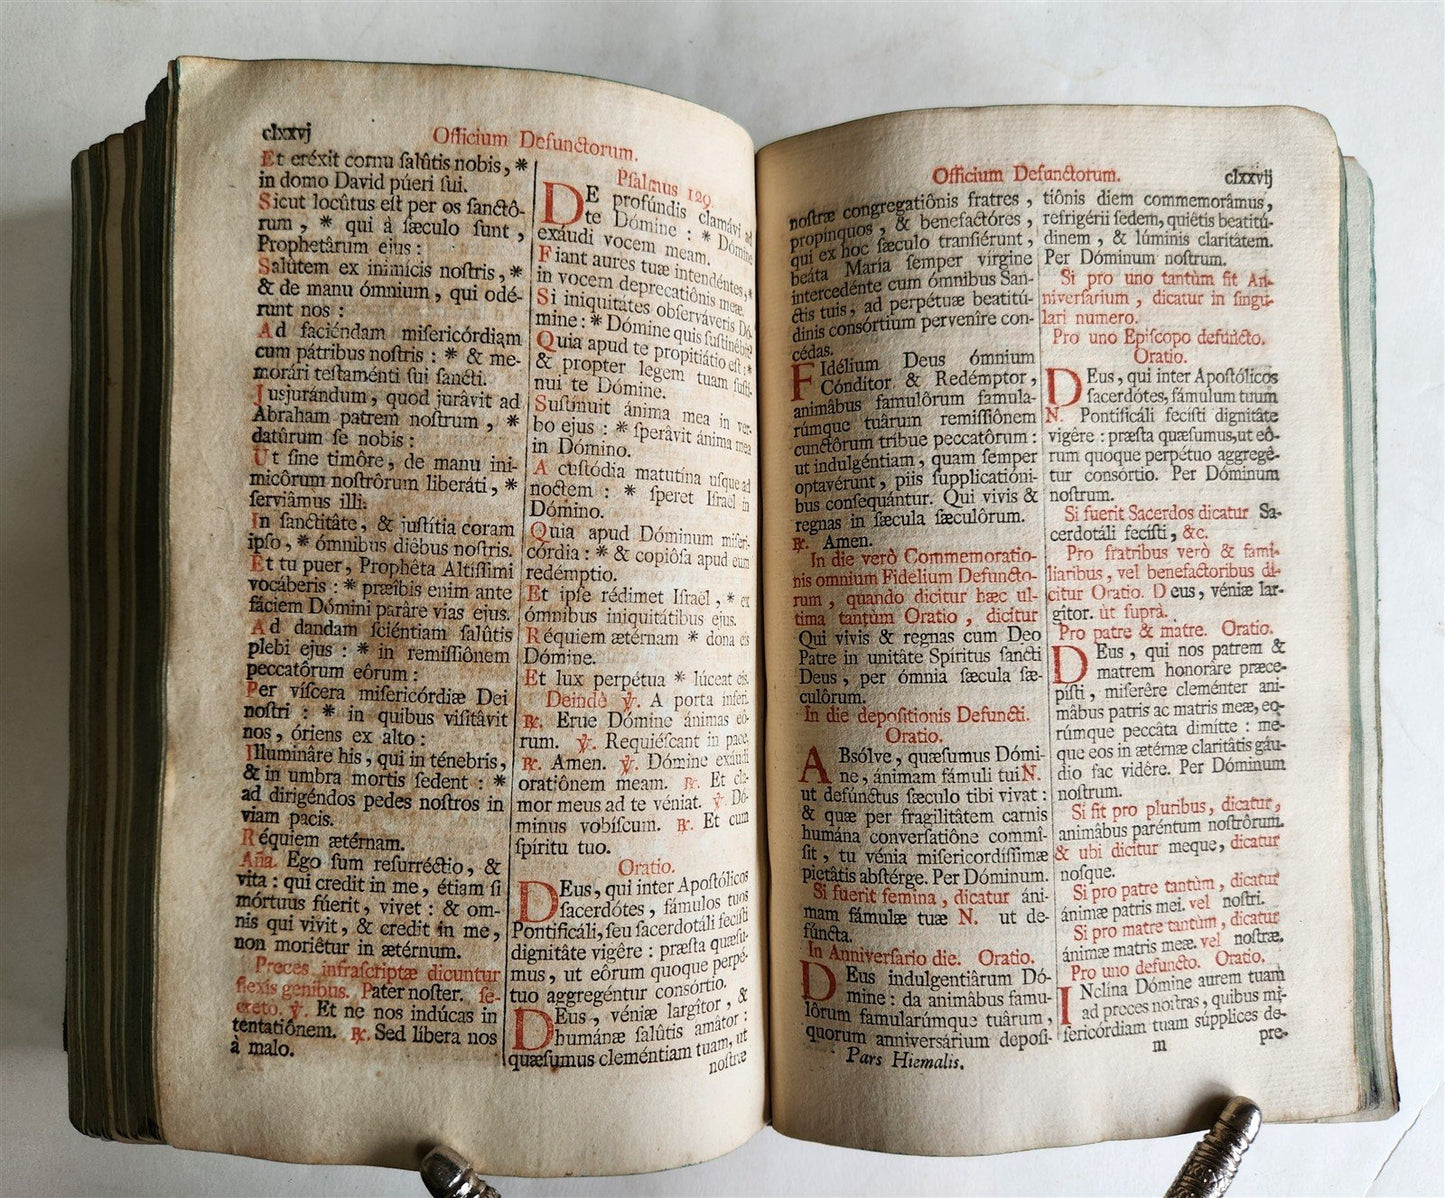 clxxvj
Officium Defunctorum.
Et eréxit cornu ſalûtis nobis, *
in domo David púeri ſui.
Sicut locûtus eſt per os ſanctô-
rum, * qui à ſæculo ſunt,
Prophetârum ejus:
Salûtem ex inimicis noſtris, *
& de manu ómnium, qui odé-
runt nos:
Ad faciéndam miſericórdiam
cum pátribus noſtris: * & me-
morári teſtaménti ſui ſancti.
Jusjurándum, quod jurâvit ad
Abraham patrem noſtrum, *
datûrum ſe nobis:
Ut ſine timôre, de manu ini-
micôrum noſtrôrum liberáti, *
ſerviâmus illi.
In ſanctitâte, & juſtítia coram
ipſo, * ómnibus diêbus noſtris.
Et tu puer, Prophêta Altiſſimi
vocáberis: * præîbis enim ante
fáciem Dómini parâre vias ejus.
Ad dandam ſciéntiam ſalûtis
plebi ejus: * in remiſſiônem
peccatôrum eôrum:
Per víſcera miſericórdiæ Dei
noſtri: * in quibus viſitâvit
nos, óriens ex alto:
Illuminâre his, qui in ténebris,
& in umbra mortis ſedent: *
ad dirigéndos pedes noſtros in
viam pacis.
Réquiem ætérnam.
Aña. Ego ſum reſurréctio, &
vita: qui credit in me, étiam ſi
mórtuus fúerit, vivet: & om-
nis qui vivit, & credit in me,
non moriêtur in ætérnum.
Preces infraſcriptæ dicuntur
flexis genibus. Pater noſter. ſe-
creto. ℣. Et ne nos indúcas in
tentatiônem. ℟. Sed líbera nos
à malo.
Pſalmus 129.
DE profúndis clamávi ad
te Dómine: * Dómine
exáudi vocem meam.
Fiant aures tuæ intendéntes, *
in vocem deprecatiônis meæ.
Si iniquitátes obſerváveris Dó-
mine: * Dómine quis ſuſtinébit?
Quia apud te propitiátio eſt: *
& propter legem tuam ſuſti-
nui te Dómine.
Suſtínuit ánima mea in ver-
bo ejus: * ſperâvit ánima mea
in Dómino.
A cuſtódia matutina uſque ad
noctem: * ſperet Iſraël in
Dómino.
Quia apud Dóminum miſeri-
córdia: * & copióſa apud eum
redémptio.
Et ipſe rédimet Iſraël, * ex
ómnibus iniquitátibus ejus.
Réquiem ætérnam * dona eis
Dómine.
Et lux perpétua * lúceat eis.
Deinde ℣. A porta ínferi.
℟. Erue Dómine ánimas eô-
rum. ℣. Requiéſcant in pace.
℟. Amen. ℣. Dómine exáudi
oratiônem meam. ℟. Et cla-
mor meus ad te véniat. ℣. Dó-
minus vobíſcum. ℟. Et cum
ſpíritu tuo.
Oratio.
DEus, qui inter Apoſtólicos
ſacerdótes, fámulos tuos
Pontificáli, ſeu ſacerdotáli feciſti
dignitâte vigêre: præſta quæſu-
mus, ut eôrum quoque perpé-
tuo aggregéntur conſórtio.
DEus, véniæ largítor, &
humánæ ſalûtis amâtor:
quæſumus cleméntiam tuam, ut
noſtræ
Officium Defunctorum.
clxxvij
noſtræ congregatiônis fratres,
propínquos, & benefactóres,
qui ex hoc ſæculo tranſiérunt,
beáta María ſemper vírgine
intercedénte cum ómnibus San-
ctis tuis, ad perpétuæ beatitú-
dinis conſórtium perveníre con-
cédas.
FIdélium Deus ómnium
Cónditor & Redémptor,
animâbus famulôrum famula-
rúmque tuârum remiſſiônem
cunctôrum tríbue peccatôrum:
ut indulgéntiam, quam ſemper
optavérunt, piis ſupplicatióni-
bus conſequántur. Qui vivis &
regnas in ſæcula ſæculôrum.
℟. Amen.
In die verò Commemoratio-
nis omnium Fidelium Defuncto-
rum, quando dicitur hæc ul-
tima tantùm Oratio, dicitur
Qui vivis & regnas cum Deo
Patre in unitâte Spíritus ſancti
Deus, per ómnia ſæcula ſæ-
culôrum.
In die depoſitionis Defuncti.
Oratio.
ABſólve, quæſumus Dómi-
ne, ánimam fámuli tui N.
ut defúnctus ſæculo tibi vivat:
& quæ per fragilitâtem carnis
humána converſatiône commí-
ſit, tu vénia miſericordíſſimæ
pietâtis abſtérge. Per Dóminum.
Si fuerit femina, dicatur áni-
mam fámulæ tuæ N. ut de-
fúncta.
In Anniverſario die. Oratio.
DEus indulgentiârum Dó-
mine: da animâbus famu-
lôrum famularúmque tuârum,
quorum anniverſárium depoſi-
Pars Hiemalis.
tiônis diem commemorâmus,
refrigérii ſedem, quiêtis beatitú-
dinem, & lúminis claritâtem.
Per Dóminum noſtrum.
Si pro uno tantùm fit An-
niverſarium, dicatur in ſingu-
lari numero.
Pro uno Epiſcopo defuncto.
Oratio.
DEus, qui inter Apoſtólicos
ſacerdótes, fámulum tuum
N. Pontificáli feciſti dignitâte
vigêre: præſta quæſumus, ut eô-
rum quoque perpétuo aggregê-
tur conſórtio. Per Dóminum
noſtrum.
Si fuerit Sacerdos dicatur Sa-
cerdotáli feciſti, &c.
Pro fratribus verò & fami-
liaribus, vel benefactoribus di-
citur Oratio. Deus, véniæ lar-
gitor. ùt ſuprà.
Pro patre & matre. Oratio.
DEus, qui nos patrem &
matrem honorâre præce-
piſti, miſerêre cleménter ani-
mâbus patris ac matris meæ, eo-
rúmque peccáta dimítte: me-
que eos in ætérnæ claritâtis gáu-
dio fac vidêre. Per Dóminum
noſtrum.
Si fit pro pluribus, dicatur,
animâbus paréntum noſtrôrum.
& ubi dicitur meque, dicatur
noſque.
Si pro patre tantùm, dicatur
ánimæ patris mei. vel noſtri.
Si pro matre tantùm, dicatur
ánimæ matris meæ. vel noſtræ.
Pro uno defuncto. Oratio.
INclína Dómine aurem tuam
ad preces noſtras, quibus mi-
ſericórdiam tuam súpplices de-
m
pre-